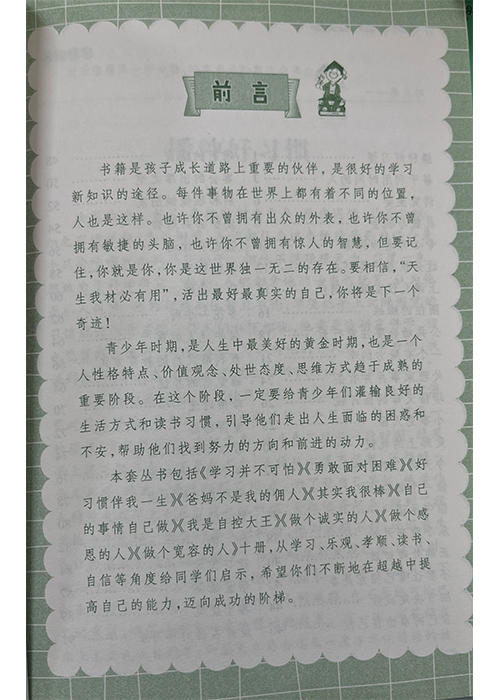 前言
书籍是孩子成长道路上重要的伙伴，是很好的学习
新知识的途径。每件事物在世界上都有着不同的位置，
人也是这样。也许你不曾拥有出众的外表，也许你不曾
拥有敏捷的头脑，也许你不曾拥有惊人的智慧，但要记
住，你就是你，你是这世界独一无二的存在。要相信，“天
生我材必有用”，活出最好最真实的自己，你将是下一个
奇迹！
青少年时期，是人生中最美好的黄金时期，也是一个
人性格特点、价值观念、处世态度、思维方式趋于成熟的
重要阶段。在这个阶段，一定要给青少年们灌输良好的
生活方式和读书习惯，引导他们走出人生面临的困惑和
不安，帮助他们找到努力的方向和前进的动力。
本套丛书包括《学习并不可怕》《勇敢面对困难》《好
习惯伴我一生》《爸妈不是我的佣人》《其实我很棒》《自己
的事情自己做》《我是自控大王》《做个诚实的人》《做个感
恩的人》《做个宽容的人》十册，从学习、乐观、孝顺、读书、
自信等角度给同学们启示，希望你们不断地在超越中提
高自己的能力，迈向成功的阶梯。